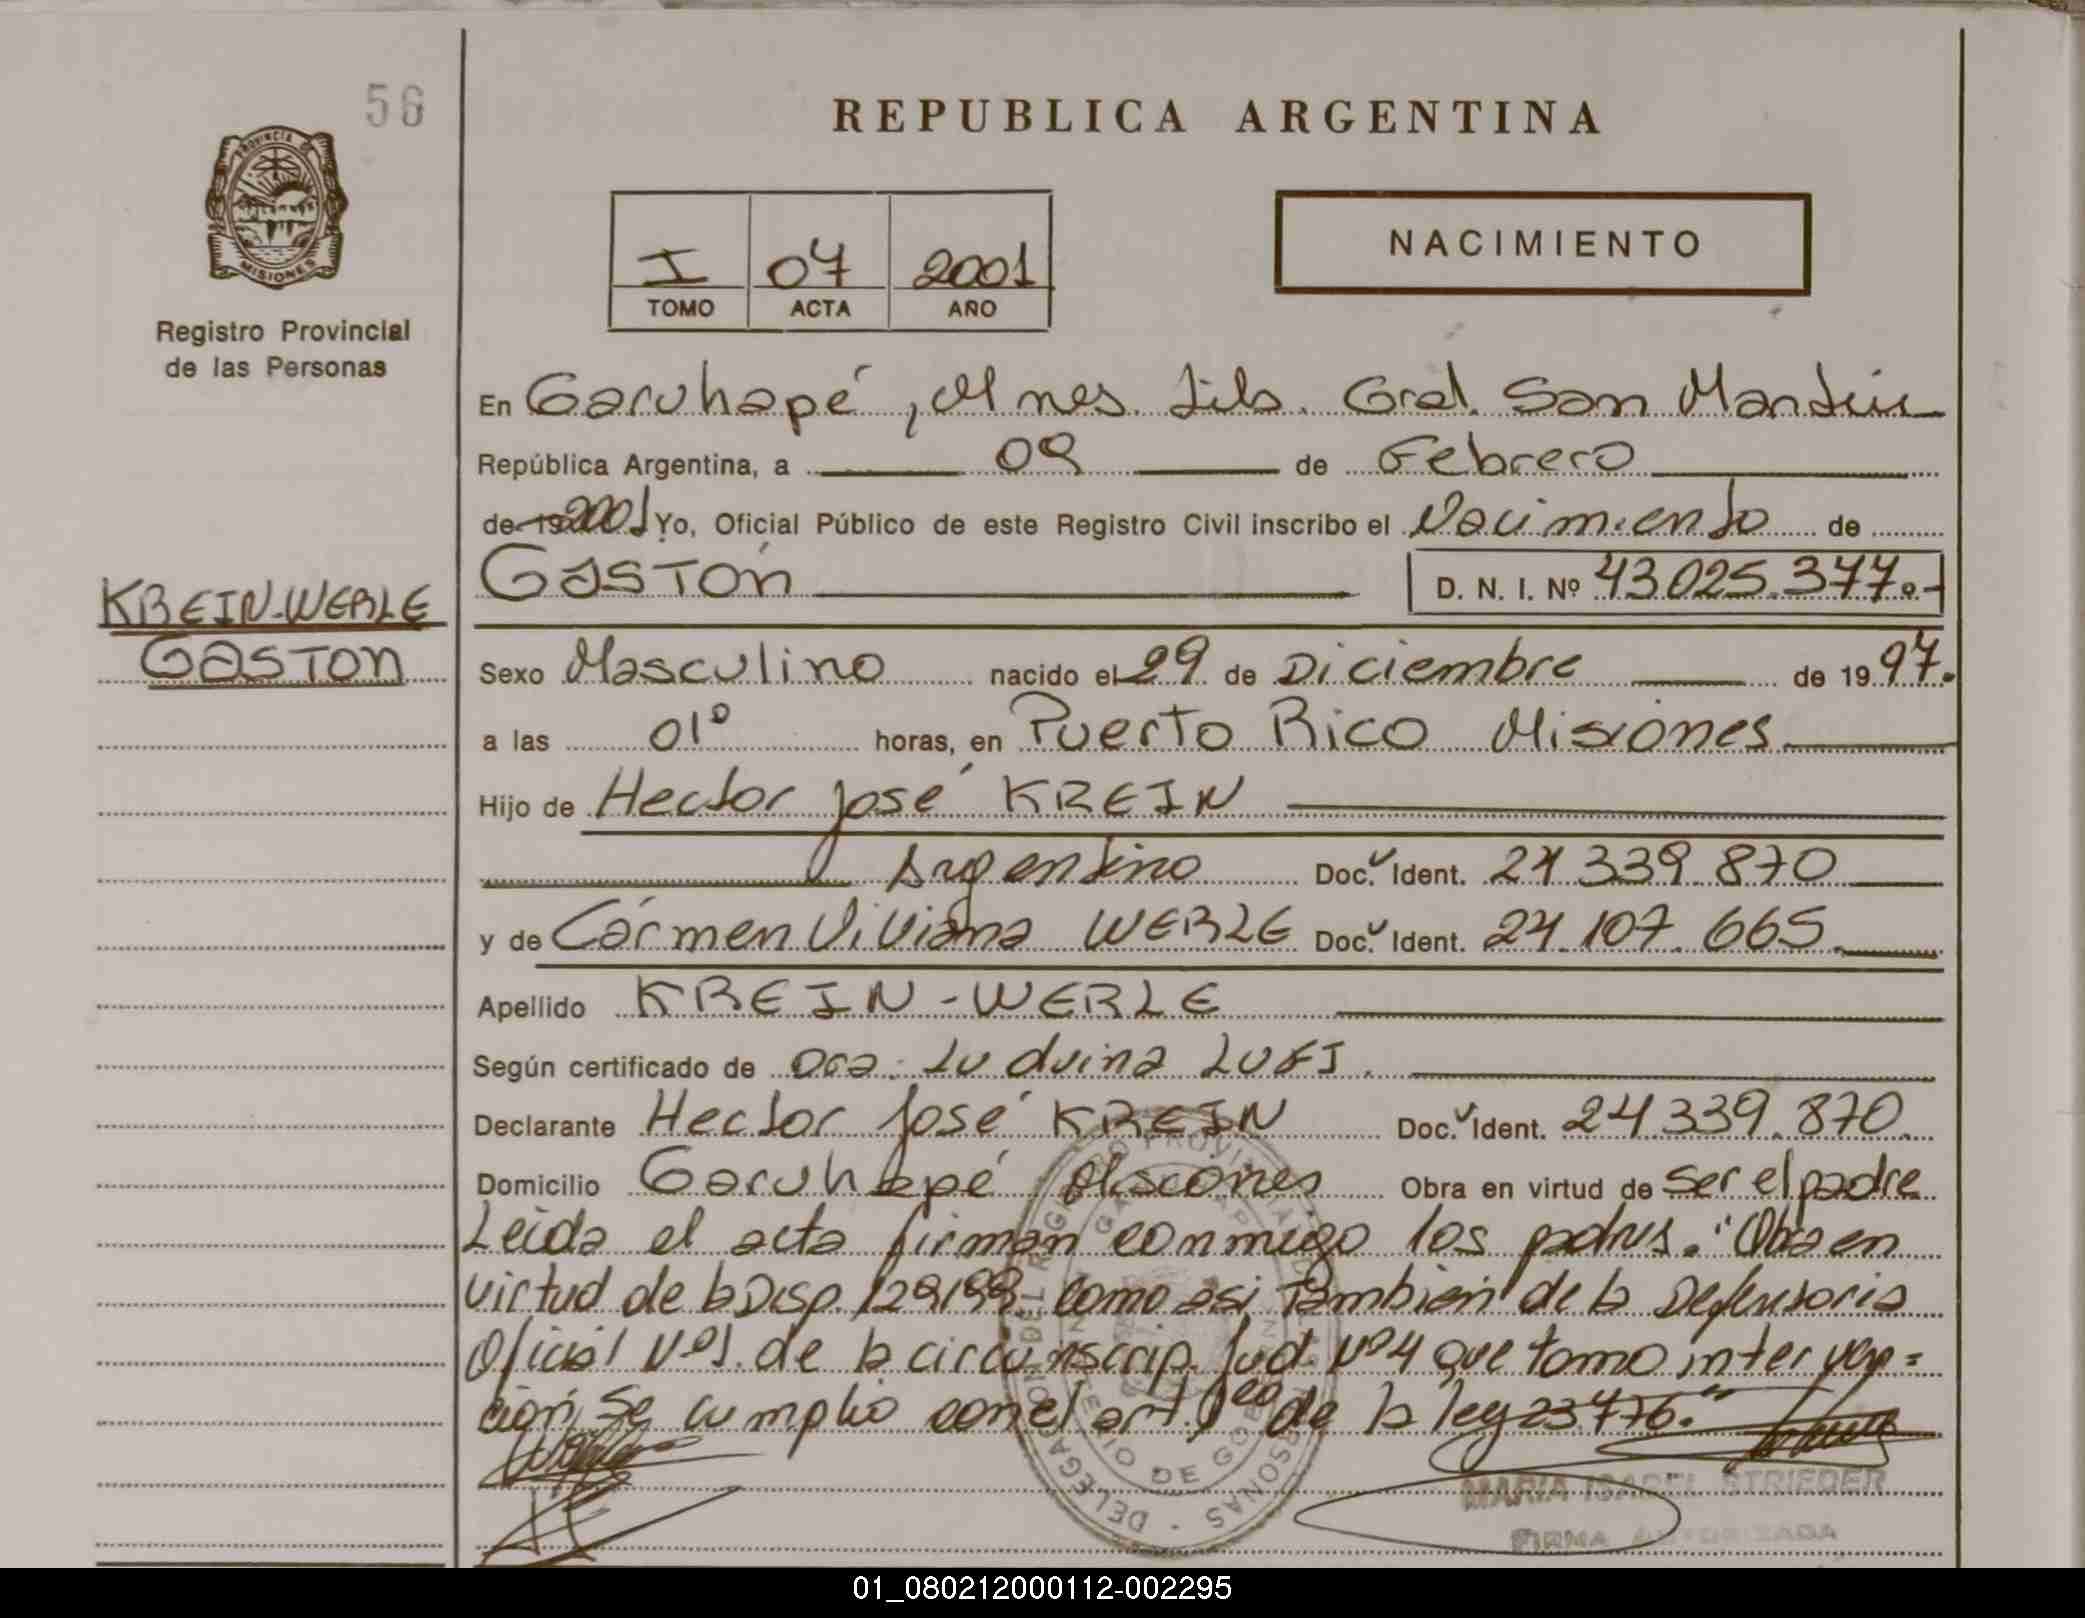 56
REPUBLICA ARGENTINA
PROVINCIA DE
MISIONES
Registro Provincial
de las Personas
I 07 2001
TOMO ACTA AÑO
NACIMIENTO
En Garuhapé, Mnes. Lib. Gral. San Martín
República Argentina, a 09 de Febrero
de 19 2001 Yo, Oficial Público de este Registro Civil inscribo el Nacimiento de
GASTÓN D. N. I. Nº 43.025.377.-
KREIN-WERLE
GASTON
Sexo Masculino nacido el 29 de Diciembre de 19 97.
a las 01º horas, en Puerto Rico Misiones
Hijo de Hector José KREIN
Argentino Doc. Ident. 24 339 870
y de Cármen Viviana WERLE Doc. Ident. 24.107.665.
Apellido KREIN-WERLE
Según certificado de Dra. Luduina
Declarante Hector José KREIN Doc. Ident. 24.339.870.
Domicilio Garuhapé Misiones Obra en virtud de ser el padre
Leida el acta firman conmigo los padres. "Obra en
virtud de la Disp. como asi también de la Defensoria
Oficial Nº1. de la circunscrip. Jud. Nº4 que tomo interven=
ción, se cumplio con el art. de la ley 23.776."
DELEGACION DEL REGISTRO PROVINCIAL DE LAS PERSONAS
MINISTERIO DE GOBIERNO
MARIA ISABEL STRIEDER
FIRMA AUTORIZADA
01_080212000112-002295